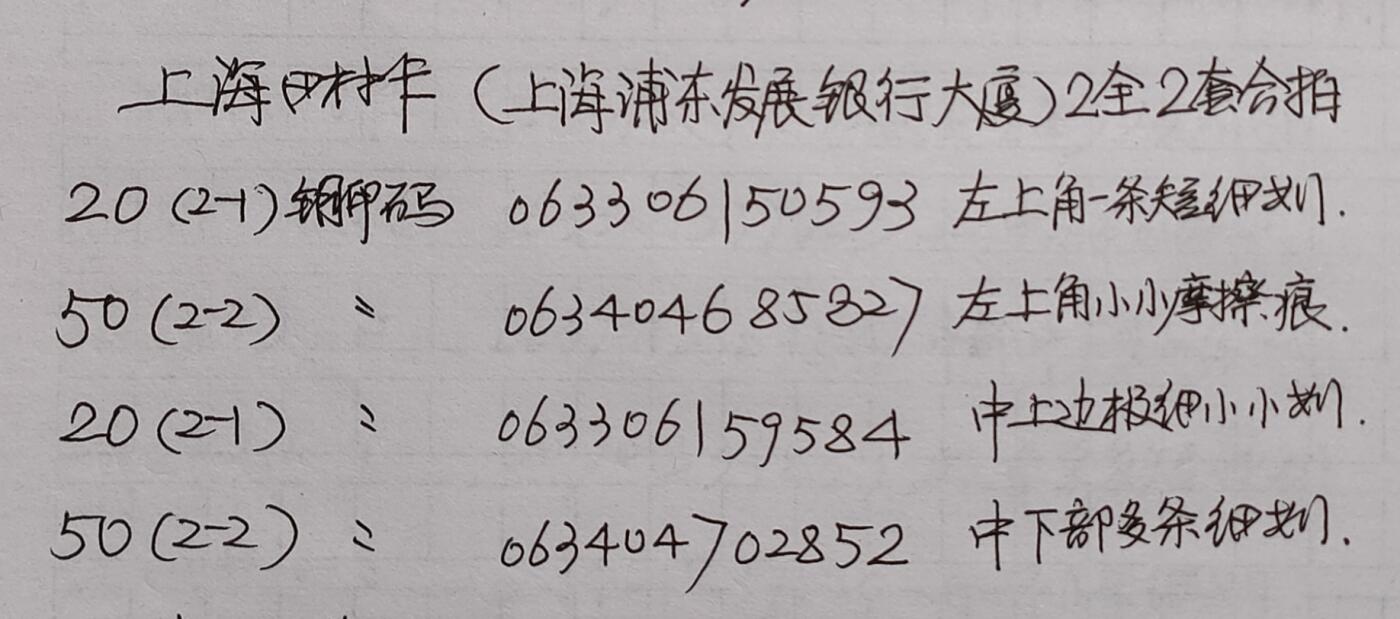 上海田村卡（上海浦东发展银行大厦）2全2套合拍
20（2-1）钢印码 063306150593 左上角一条短细划.
50（2-2） 〃 063404685827 左上角小小摩擦痕.
20（2-1） 〃 063306159584 中上边极细小小划.
50（2-2） 〃 063404702852 中下部多条细划.